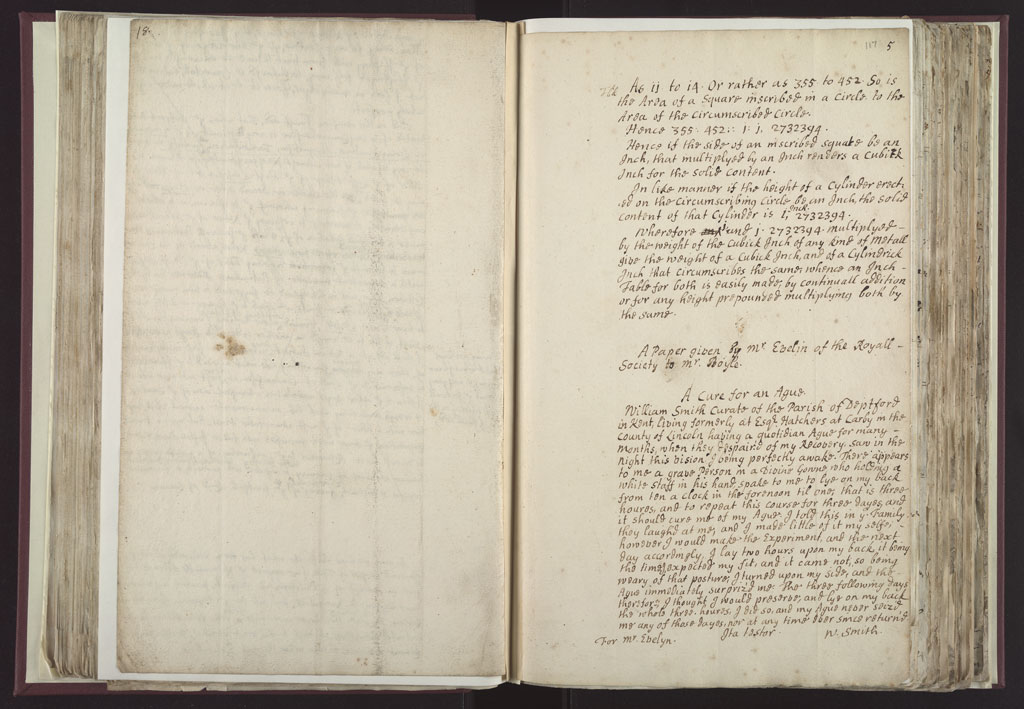 18.
117 5
As 11 to 14. Or rather as 355 to 452. So is
the Area of a Square inscribed in a Circle to the
Area of the Circumscribed Circle.
Hence 355. 452:: 1. 1. 2732394.
Hence if the side of an inscribed square be an
Inch, that multiplyed by an Inch renders a Cubick
Inch for the solid content.
In like manner if the height of a Cylinder erect-
ed on the Circumscribing Circle be an Inch, the solid
content of that Cylinder is 1, Inch. 2732394.
Wherefore and 1. 2732394. multiplyed
by the weight of the Cubick Inch of any kind of metall
give the weight of a Cubick Inch, and of a Cylindrick
Inch that circumscribes the same, whence an Inch-
Table for both is easily made, by continuall addition
or for any height propounded multiplying both by
the same.
A Paper given by mr. Evelin of the Royall-
Society to mr. Boyle.
A Cure for an Ague.
William Smith Curate of the Parish of Deptford
in Kent, living formerly at Esqr. Hatchers at Carby in the
County of Lincoln having a quotidian Ague for many-
months, when they despaired of my Recovery, saw in the
Night this vision I being perfectly awake. There appears
to me a grave Person in a Divine Gowne who holding a
white staff in his hand, spake to me to lye on my back
from ten a clock in the forenoon til one, that is three
houres, and to repeat this course for three dayes, and
it should cure me of my Ague. I told this in ye. Family
they laughd at me, and I made little of it my selfe,
however I would make the Experiment, and the next
day accordingly, I lay two hours upon my back, it being
the time I expected my fit, and it came not, so being
weary of that posture, I turned upon my side, and the
Ague immediately surpriz'd me. The three following days
therefore, I thought I would preserve, and lye on my back
the whole three houres, I did so, and my Ague never seiz'd
me any of those dayes, nor at any time ever since returnd
For mr. Evelyn. Ita testor W. Smith.